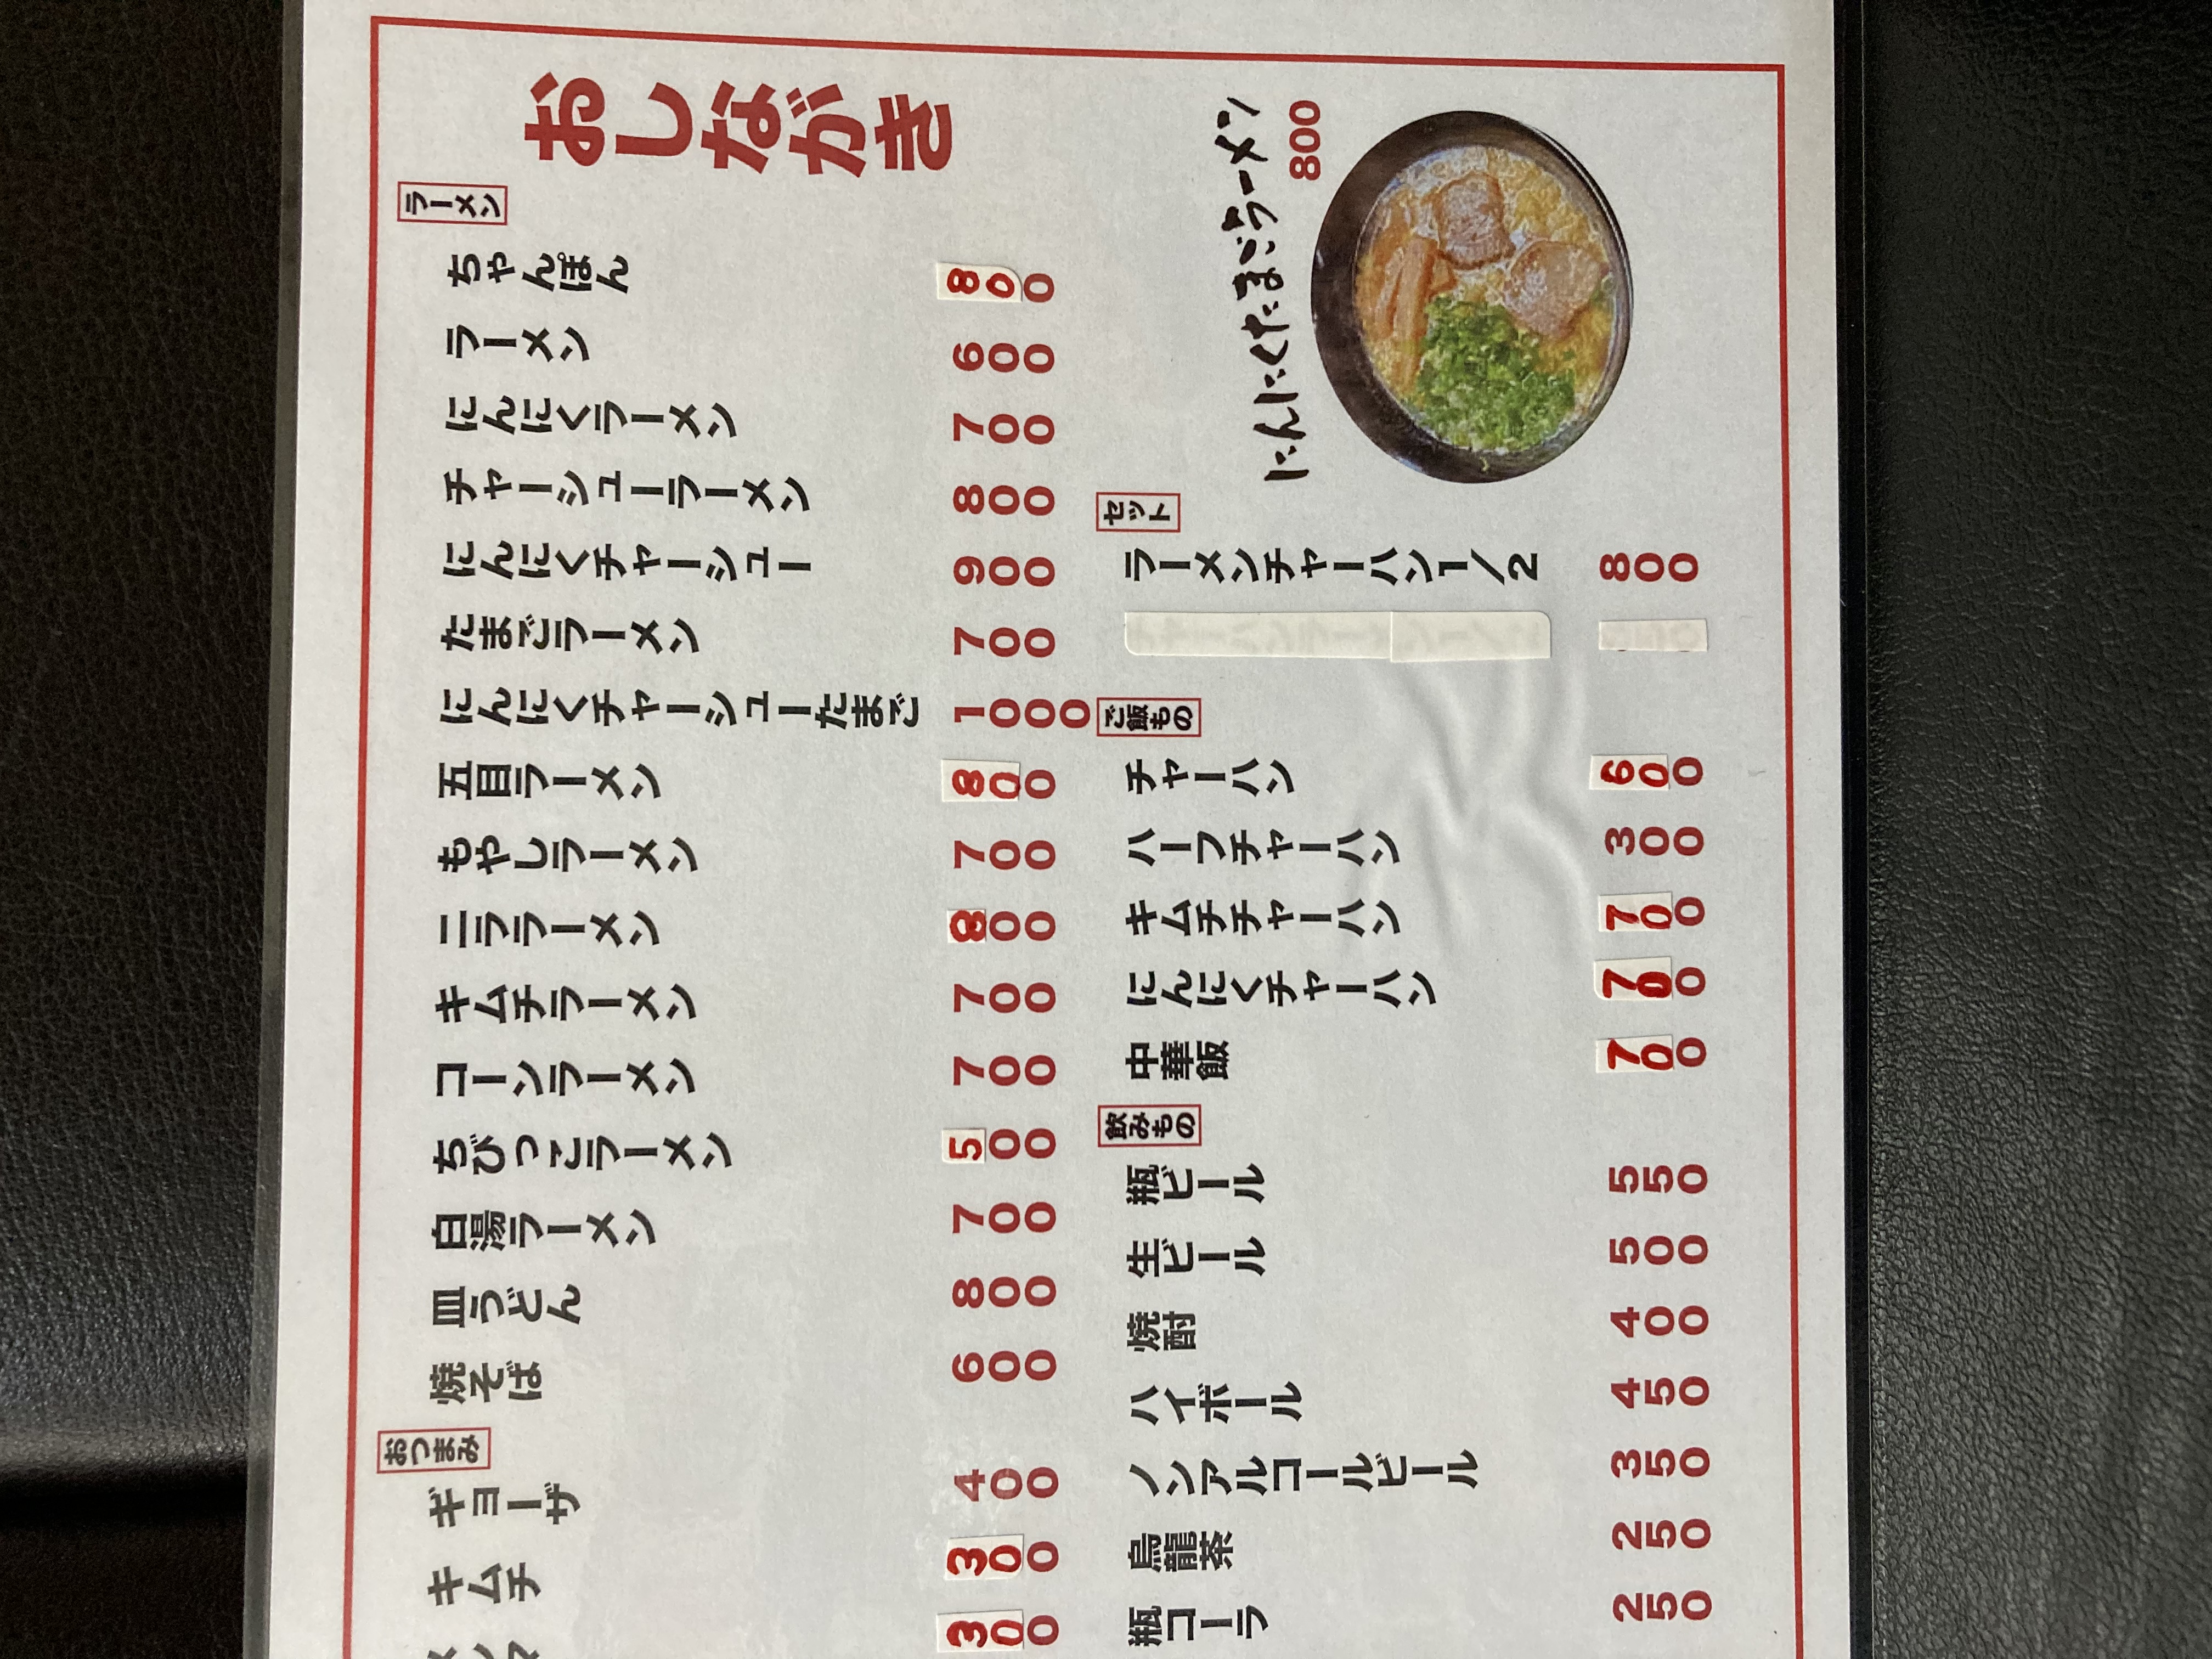 おしながき
ラーメン
ちゃんぽん 800
ラーメン 600
にんにくラーメン 700
チャーシューラーメン 800
にんにくチャーシュー 900
たまごラーメン 700
にんにくチャーシューたまご 1000
五目ラーメン 800
もやしラーメン 700
ニララーメン 800
キムチラーメン 700
コーンラーメン 700
ちびっこラーメン 500
白湯ラーメン 700
皿うどん 800
焼そば 600
おつまみ
ギョーザ 400
キムチ 300
メンマ 300
にんにくたまごラーメン
800
セット
ラーメンチャーハン1/2 800
ご飯もの
チャーハン 600
ハーフチャーハン 300
キムチチャーハン 700
にんにくチャーハン 700
中華飯 700
飲みもの
瓶ビール 550
生ビール 500
焼酎 400
ハイボール 450
ノンアルコールビール 350
烏龍茶 250
瓶コーラ 250